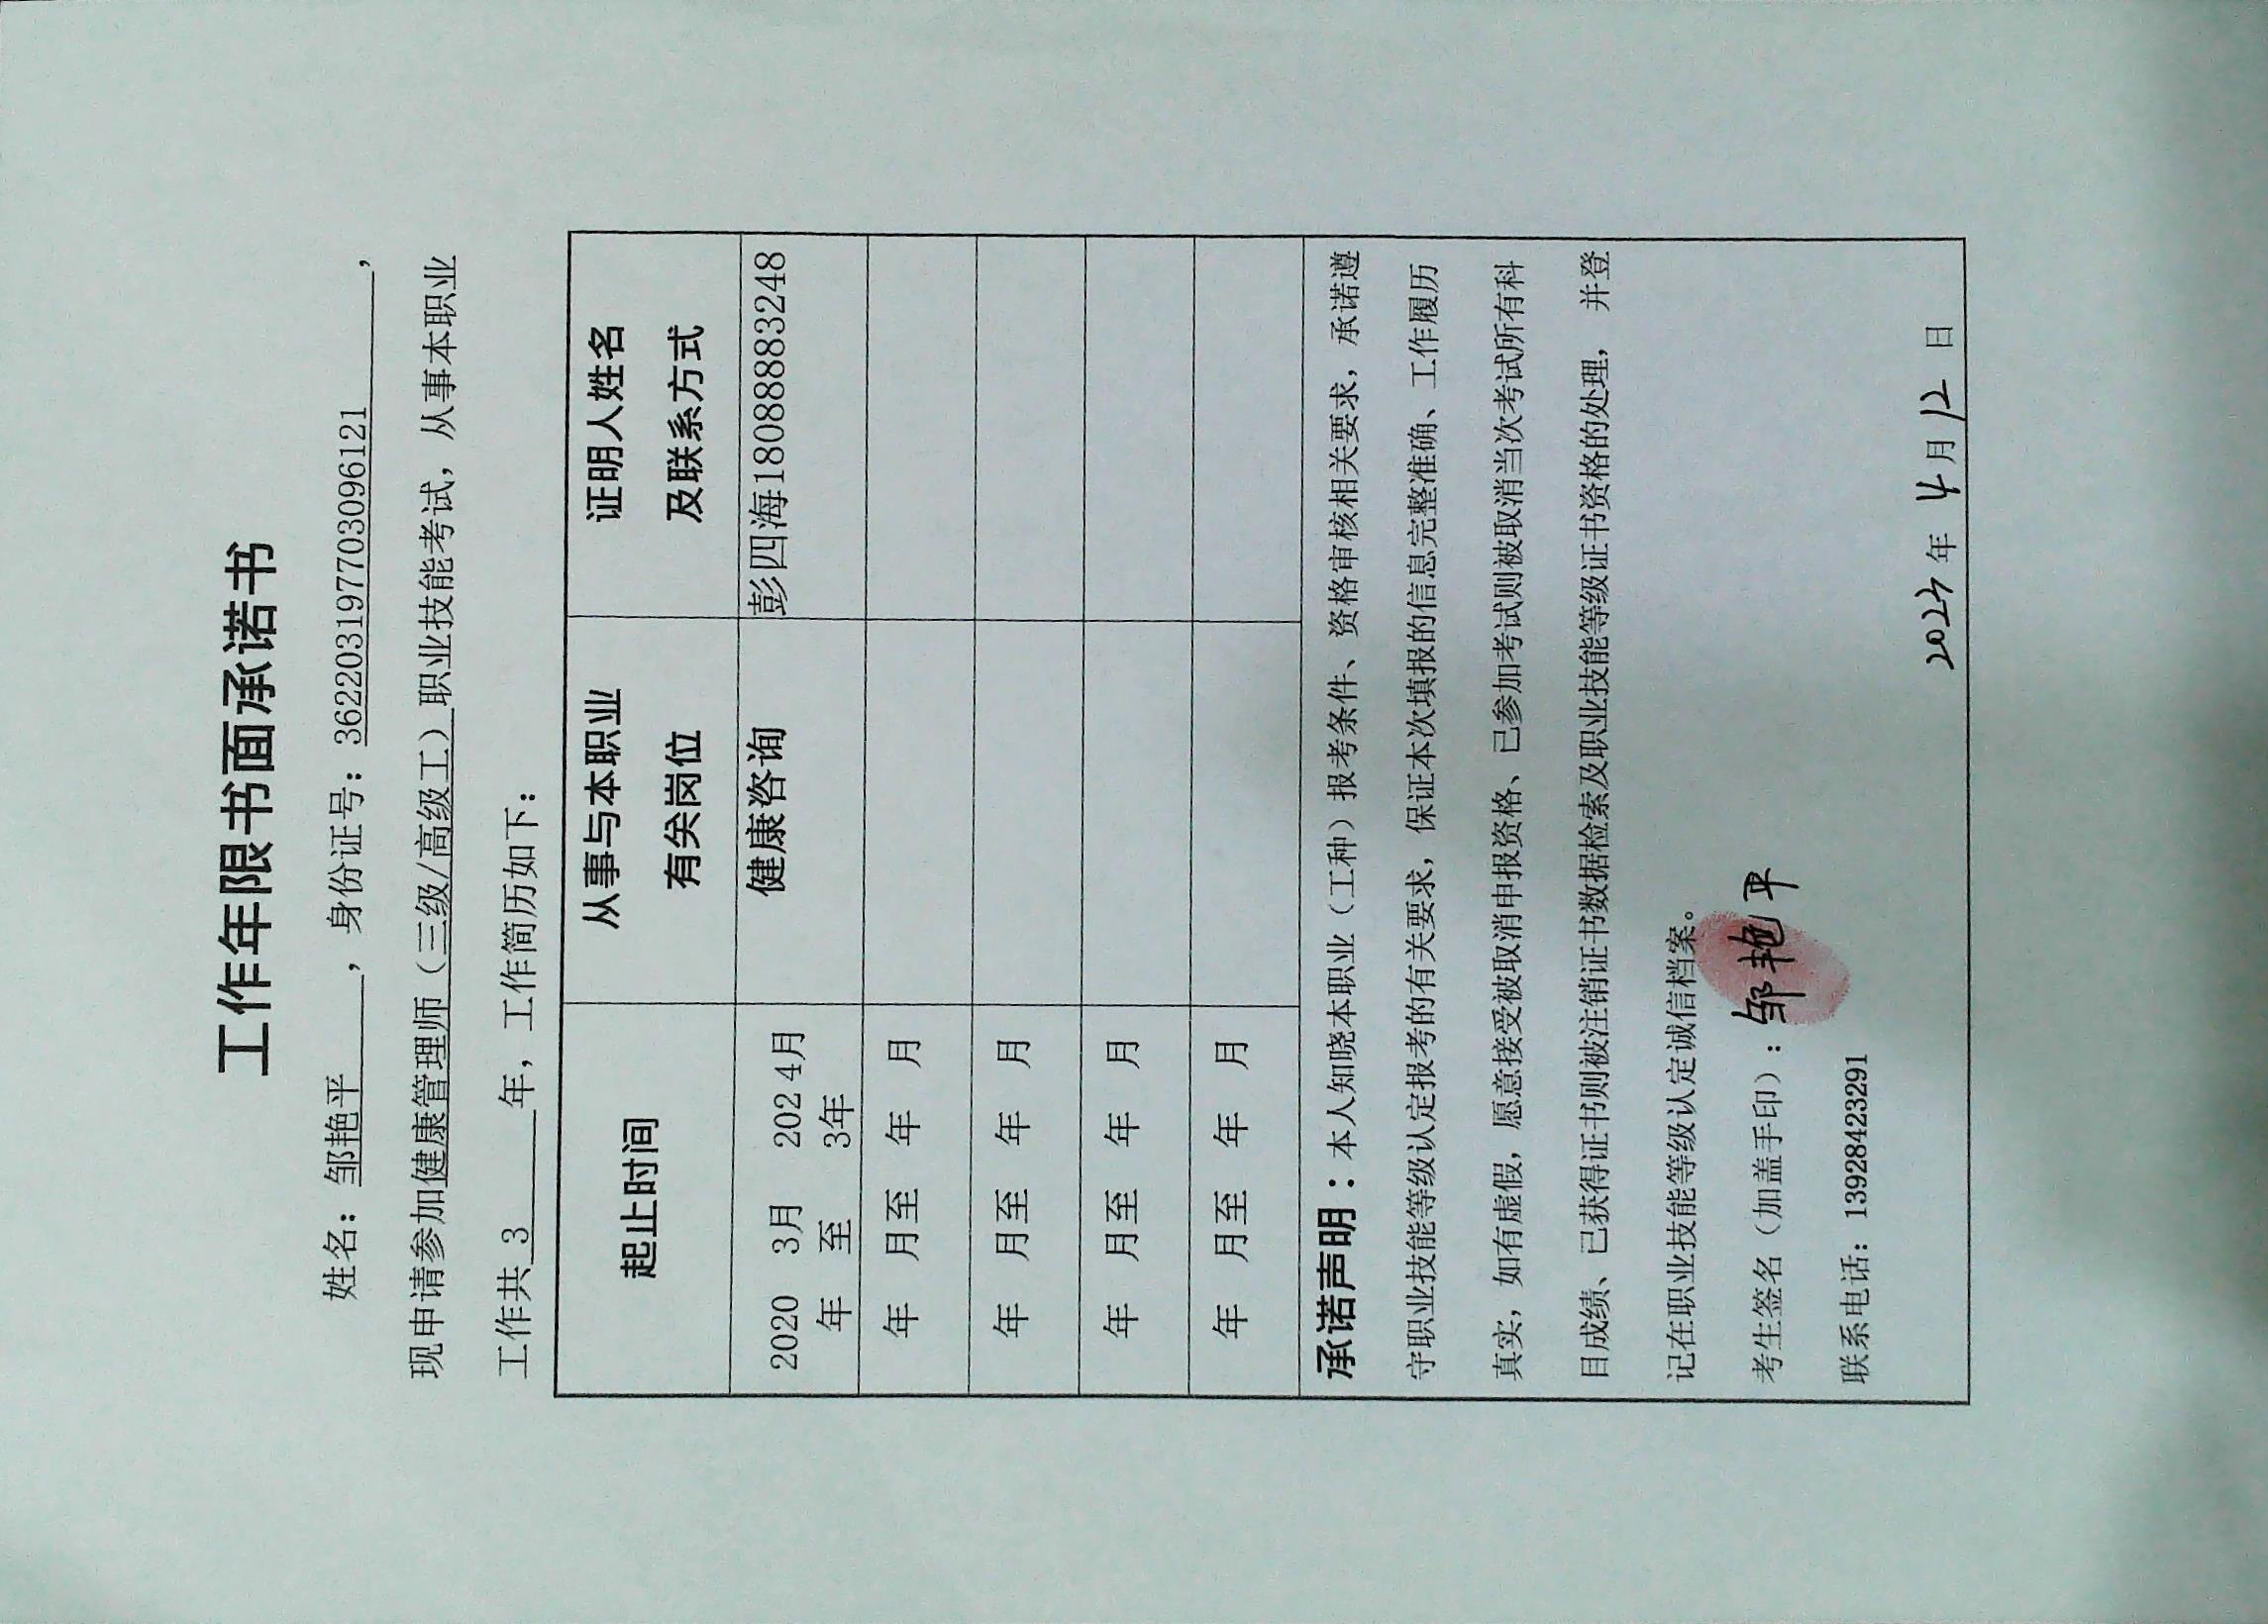 工作年限书面承诺书
姓名：邹艳平，身份证号：362203197703096121，
现申请参加健康管理师（三级/高级工）职业技能考试，从事本职业
工作共3年，工作简历如下：
起止时间 从事与本职业 证明人姓名
有关岗位 及联系方式
2020 3月 202 4月 健康咨询 彭四海18088883248
年 至 3年
年 月至 年 月
年 月至 年 月
年 月至 年 月
年 月至 年 月
承诺声明：本人知晓本职业（工种）报考条件、资格审核相关要求，承诺遵
守职业技能等级认定报考的有关要求，保证本次填报的信息完整准确、工作履历
真实，如有虚假，愿意接受被取消申报资格、已参加考试则被取消当次考试所有科
目成绩、已获得证书则被注销证书数据检索及职业技能等级证书资格的处理，并登
记在职业技能等级认定诚信档案。
考生签名（加盖手印）：邹艳平
联系电话：13928423291
2023年4月12日